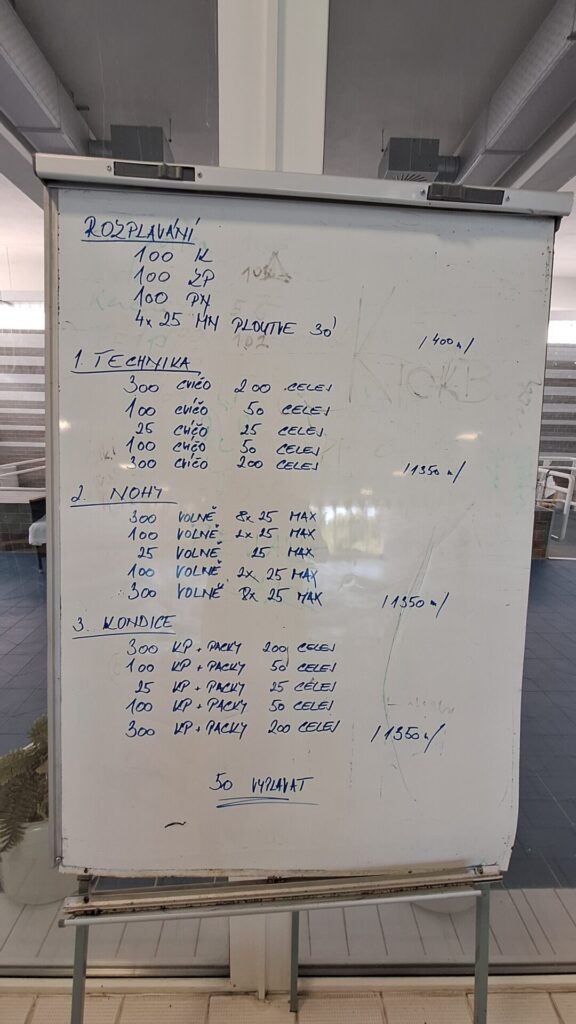 ROZPLAVÁNÍ
100 K
100 ZP
100 PN
4x 25 MN PLOUTVE 30'
/400m/
1. TECHNIKA
300 CVIČO 200 CELEJ
100 CVIČO 50 CELEJ
25 CVIČO 25 CELEJ
100 CVIČO 50 CELEJ
300 CVIČO 200 CELEJ
/1350m/
2. NOHY
300 VOLNĚ 8x 25 MAX
100 VOLNĚ 2x 25 MAX
25 VOLNĚ 25 MAX
100 VOLNĚ 2x 25 MAX
300 VOLNĚ 8x 25 MAX
/1350m/
3. KONDICE
300 KP + PACKY 200 CELEJ
100 KP + PACKY 50 CELEJ
25 KP + PACKY 25 CELEJ
100 KP + PACKY 50 CELEJ
300 KP + PACKY 200 CELEJ
/1350m/
50 VYPLAVAT